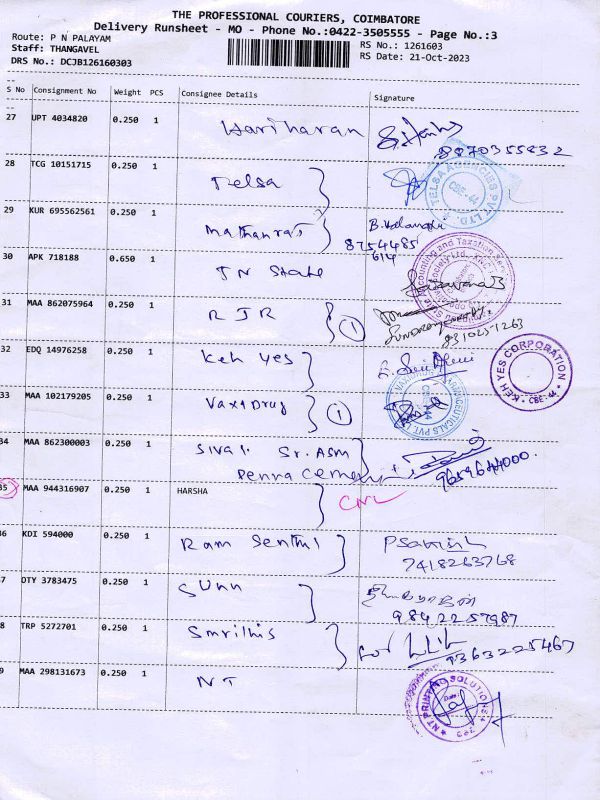 THE PROFESSIONAL COURIERS, COIMBATORE
Delivery Runsheet - MO - Phone No.:0422-3505555 - Page No.:3
Route: P N PALAYAM
RS No.: 1261603
Staff: THANGAVEL
RS Date: 21-Oct-2023
DRS No.: DCJB126160303
S No Consignment No Weight PCS Consignee Details Signature
27 UPT 4034820 0.250 1 Hariharan
8870355832
28 TCG 10151715 0.250 1 Telsa
TELSA AGENCIES PVT LTD. CBE-44
29 KUR 695562561 0.250 1 Mathanraj
8754485
614
30 APK 718188 0.650 1 TN State
31 MAA 862075964 0.250 1 RJR 1
32 EDQ 14976258 0.250 1 Keh Yes
KEH YES CORPORATION CBE-44
33 MAA 102179205 0.250 1 Vaxt Drug 1
34 MAA 862300003 0.250 1 Siva Sr. Asm
Penna Cement
9659644000
35 MAA 944316907 0.250 1 HARSHA
CNL
36 KDI 594000 0.250 1 Ram Senthil P Sathish
7418263768
37 OTY 3783475 0.250 1 Sunn
9842257987
38 TRP 5272701 0.250 1 Smrithis for
9363225467
39 MAA 298131673 0.250 1 NT
NT PRINTING SOLUTIONS